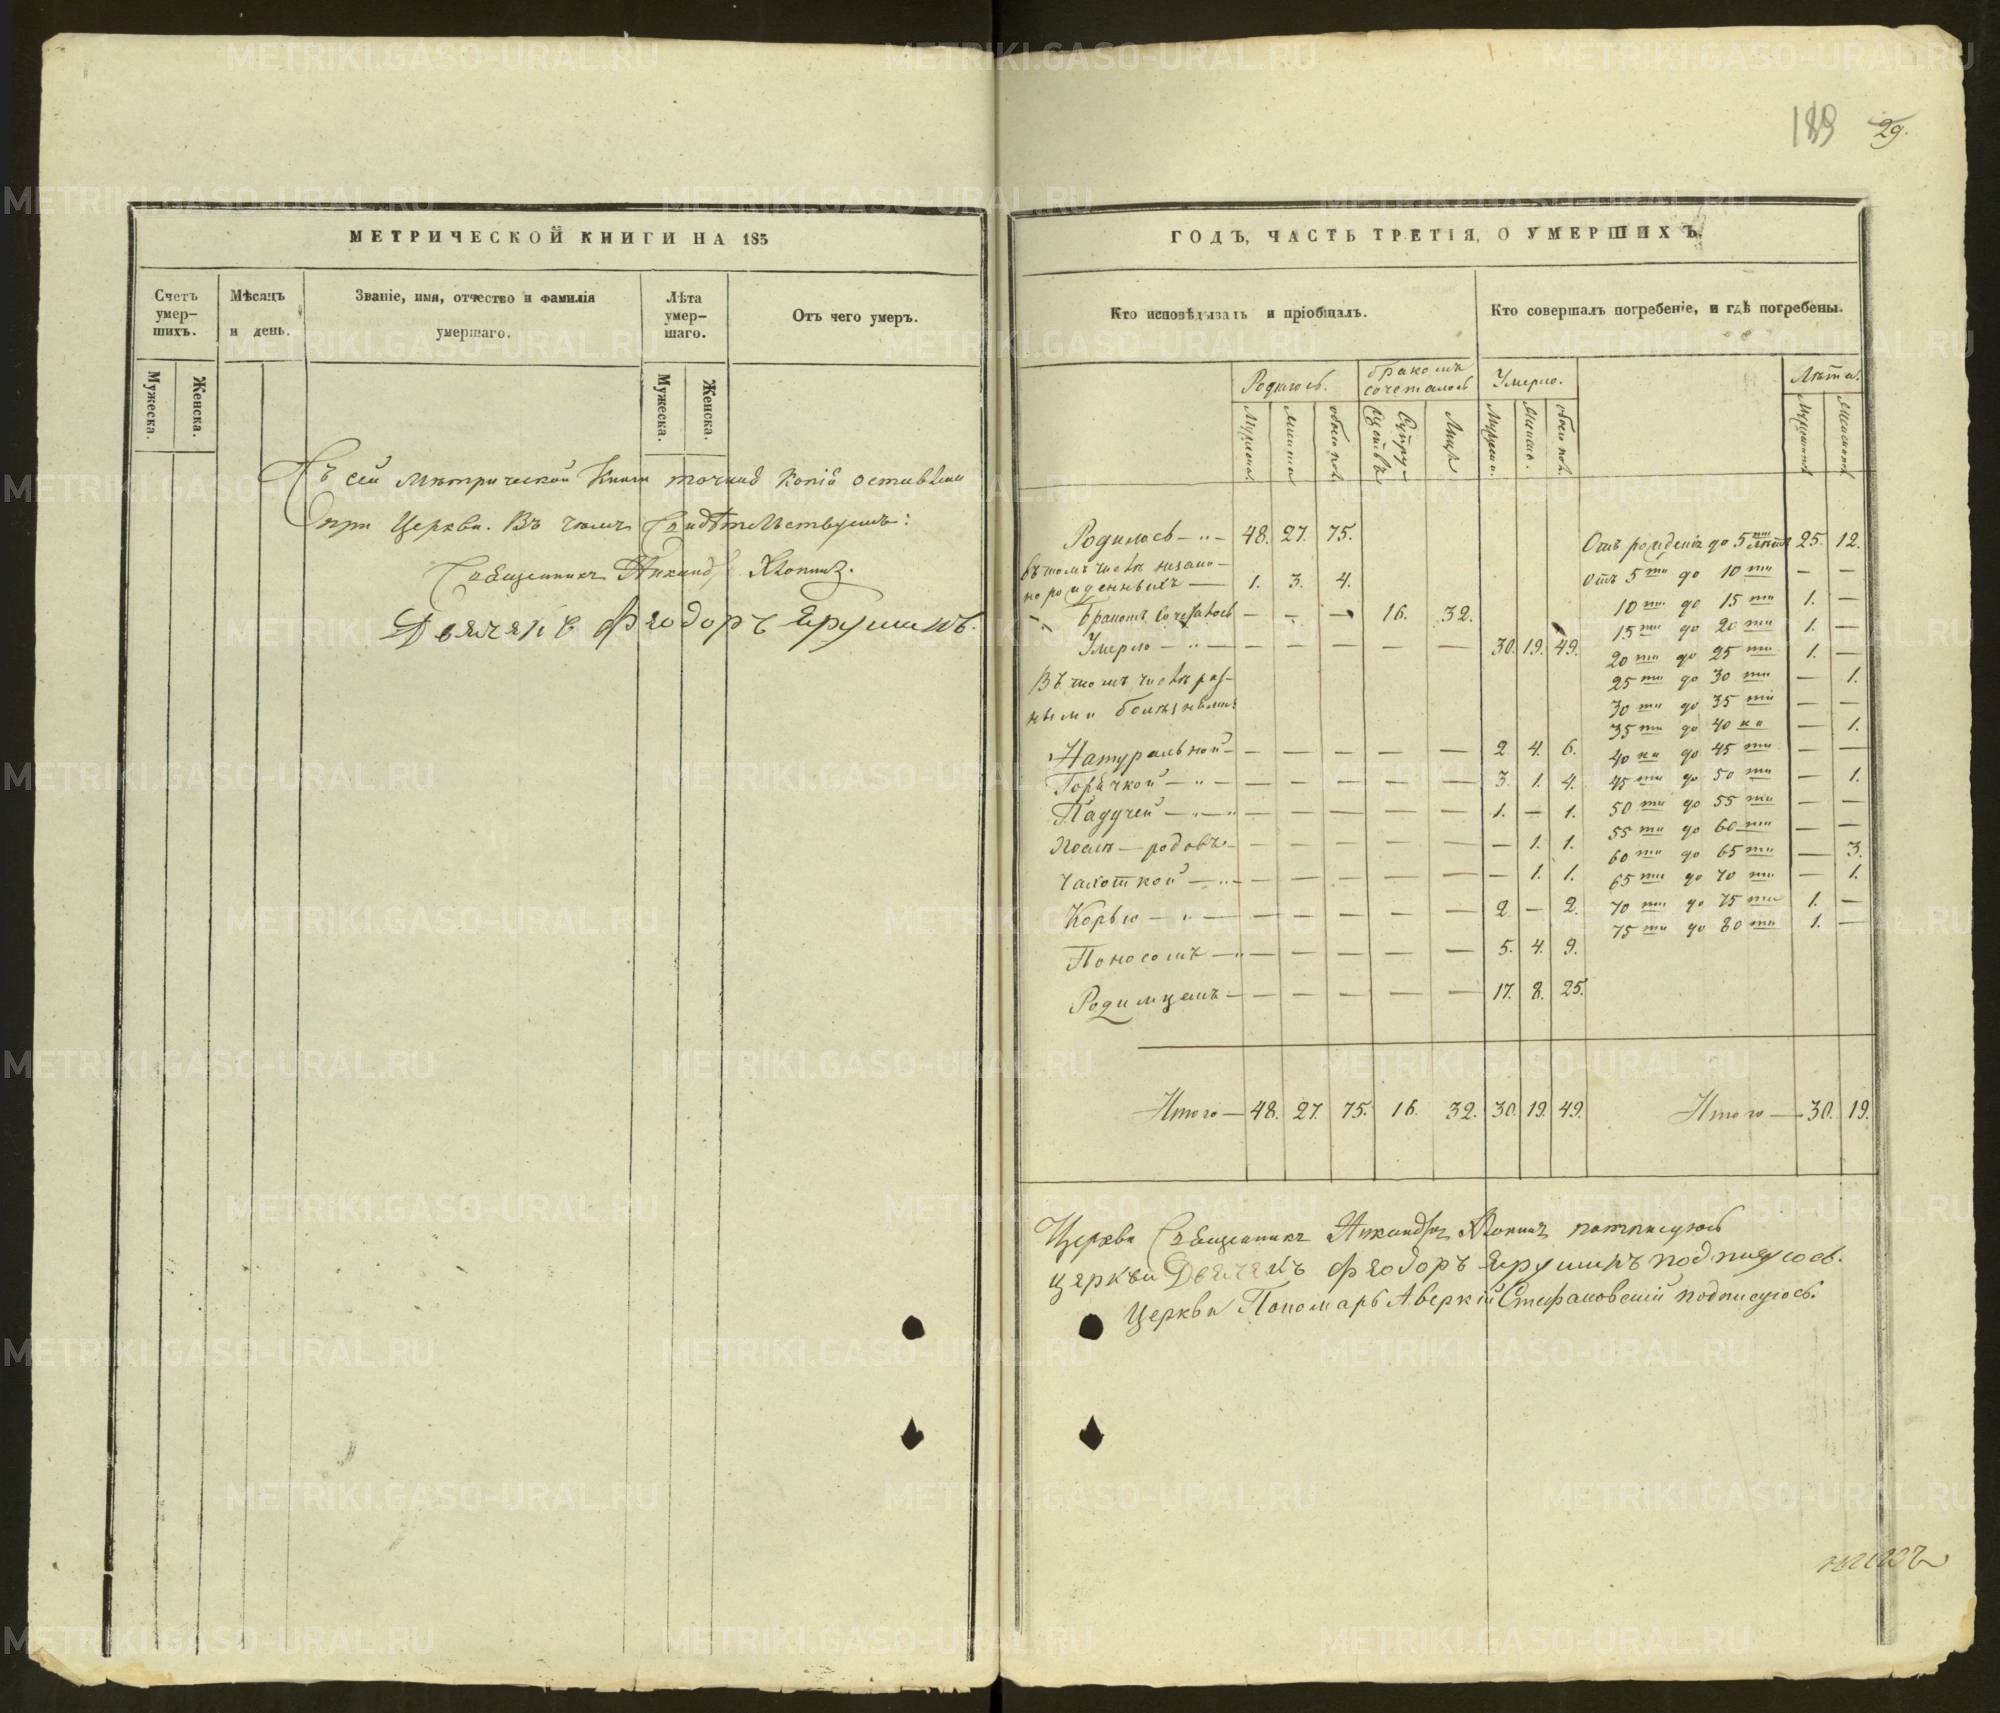 189 29.
МЕТРИЧЕСКОЙ КНИГИ НА 185
Счетъ умер-шихъ.
Мѣсяцъ и день.
Званіе, имя, отчество и фамилія умершаго.
Лѣта умер-шаго.
Отъ чего умеръ.
Мужеска. Женска. Мужеска. Женска.
Къ сей метрической книги точная копія оставлена
при Церкви. Въ чемъ свидѣтельствуемъ:
Священникъ
Дьячекъ Феодоръ Ярушинъ.
ГОДЪ, ЧАСТЬ ТРЕТІЯ, О УМЕРШИХЪ.
Кто исповѣдывалъ и пріобщалъ.
Кто совершалъ погребеніе, и гдѣ погребены.
Родилось. бракомъ сочеталось Умерло. Лѣта.
Родилось — 48. 27. 75.
Въ томъ числѣ незако-
норожденныхъ — 1. 3. 4.
Бракомъ сочеталось — — — 16. 32.
Умерло — — — — — — 30. 19. 49.
Въ томъ числѣ раз-
ными болѣзнями
Натуральной — — — — — 2 4. 6.
Горячкой — — — — — 3. 1. 4.
Падучей — — — — — 1. — 1.
Послѣ родовъ — — — — — — 1. 1.
Чахоткой — — — — — — 1. 1.
Корью — — — — — 2 — 2.
Поносомъ — — — — — 5. 4. 9.
Родимцемъ — — — — — 17. 8. 25.
Итого — 48. 27. 75. 16. 32. 30. 19. 49.
Отъ рожденія до 5 ти лѣтъ 25. 12.
Отъ 5 ти до 10 ти — —
10 ти до 15 ти 1. —
15 ти до 20 ти 1. —
20 ти до 25 ти 1. —
25 ти до 30 ти — 1.
30 ти до 35 ти — —
35 ти до 40 ка — 1.
40 ка до 45 ти — —
45 ти до 50 ти — 1.
50 ти до 55 ти — —
55 ти до 60 ти — —
60 ти до 65 ти — 3.
65 ти до 70 ти — 1.
70 ти до 75 ти 1. —
75 ти до 80 ти 1. —
Итого — 30. 19.
Церкви Священникъ
церкви Дьячекъ Феодоръ Ярушинъ подписуюсь.
Церкви Пономарь Аверкій Стефановскій подписуюсь.
METRIKI.GASO-URAL.RU